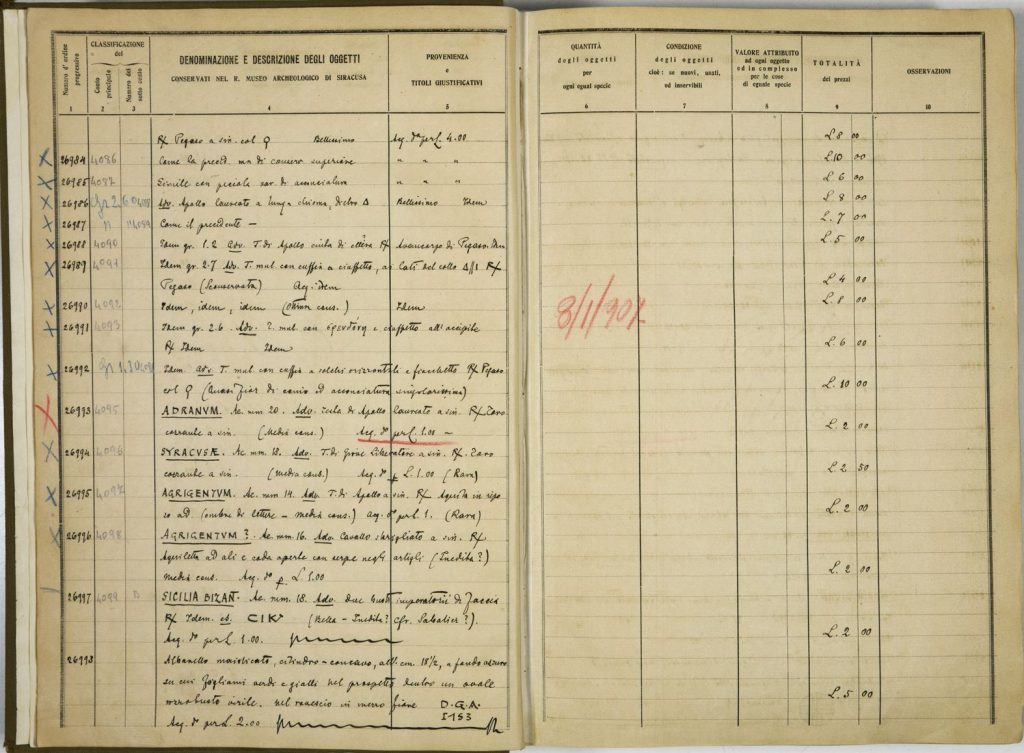 Numero d'ordine progressivo
CLASSIFICAZIONE del
Conto principale
Numero del sotto conto
DENOMINAZIONE E DESCRIZIONE DEGLI OGGETTI
CONSERVATI NEL R. MUSEO ARCHEOLOGICO DI SIRACUSA
PROVENIENZA e TITOLI GIUSTIFICATIVI
QUANTITÀ degli oggetti per ogni egual specie
CONDIZIONE degli oggetti cioè: se nuovi, usati, od inservibili
VALORE ATTRIBUITO ad ogni oggetto od in complesso per le cose di eguale specie
TOTALITÀ dei prezzi
OSSERVAZIONI
1 2 3 4 5 6 7 8 9 10
R/ Pegaso a sin. col Q Bellissimo Acq. dº per L. 4.00 L. 8 00
26984 4086 Come la preced. ma di conserv. superiore " " " L. 10 00
26985 4087 Simile con piccola var. di acconciatura " " " L. 6 00
26986 gr 2.60 4088 Adv. Apollo laureato a lunga chioma, dietro Δ Bellissimo Idem L. 8 00
26987 " " 4089 Come il precedente — L. 7 00
26988 4090 Idem gr. 1.2 Adv. T. di Apollo cinta di R/ Avancorpo di Pegaso. Idem L. 5 00
26989 4091 Idem gr. 2.7 Adv. T. mul. con cuffia a ciuffetto, ai lati del collo R/
Pegaso (Sconservata) Acq. Idem L. 4 00
26990 4092 Idem, idem, idem (Ottima cons.) Idem L. 8 00
26991 4093 Idem gr. 2.6 Adv. T. mul. con e ciuffetto all'occipite
R/ Idem Idem L. 6 00
26992 gr 1.30 Idem Adv. T. mul con cuffia a solchi orizzontali e fiocchetto R/ Pegaso
col Q (Quasi fior di conio ed acconciatura singolarissima) L. 10 00
26993 4095 ADRANVM. Ae. mm 20. Adv. Testa di Apollo laureato a sin. R/ Toro
corrente a sin. (Media cons.) Acq. dº per L. 1.00 — L. 2 00
26994 4096 SYRACVSÆ. Ae. mm. 18. Adv. T. di Giove Liberatore a sin. R/. Toro
corrente a sin. (Media cons.) Acq. dº p L. 1.00 (Rara) L. 2 50
26995 4097 AGRIGENTVM. Ae. mm 14. Adv. T. di Apollo a sin. R/ Aquila in ripo
so a d. (ombre di lettere — media cons.) acq. dº per L. 1. (Rara) L. 2 00
26996 4098 AGRIGENTVM? Ae. mm 16. Adv. Cavallo sbrigliato a sin. R/
Aquiletta ad ali e coda aperte con serpe negli artigli (Inedita?)
media cons. Acq. dº p L. 1.00 L. 2 00
26997 4099 SICILIA BIZANT. Ae. mm. 18. Adv. due busti imperatorii di faccia
R/ Idem. es. CIK (Bella — Inedita? Cfr. Sabatier?)
Acq. dº per L. 1.00. L. 2 00
26998 Albarello maiolicato, cilindro-concavo, alt. cm. 18 1/2, a fondo azzurro
su cui fogliami verdi e gialli nel prospetto dentro un ovale
busto virile. nel rovescio in mezzo fiore D.G.A.
5153
Acq. dº per L. 2.00 L. 5 00
8/1/907.